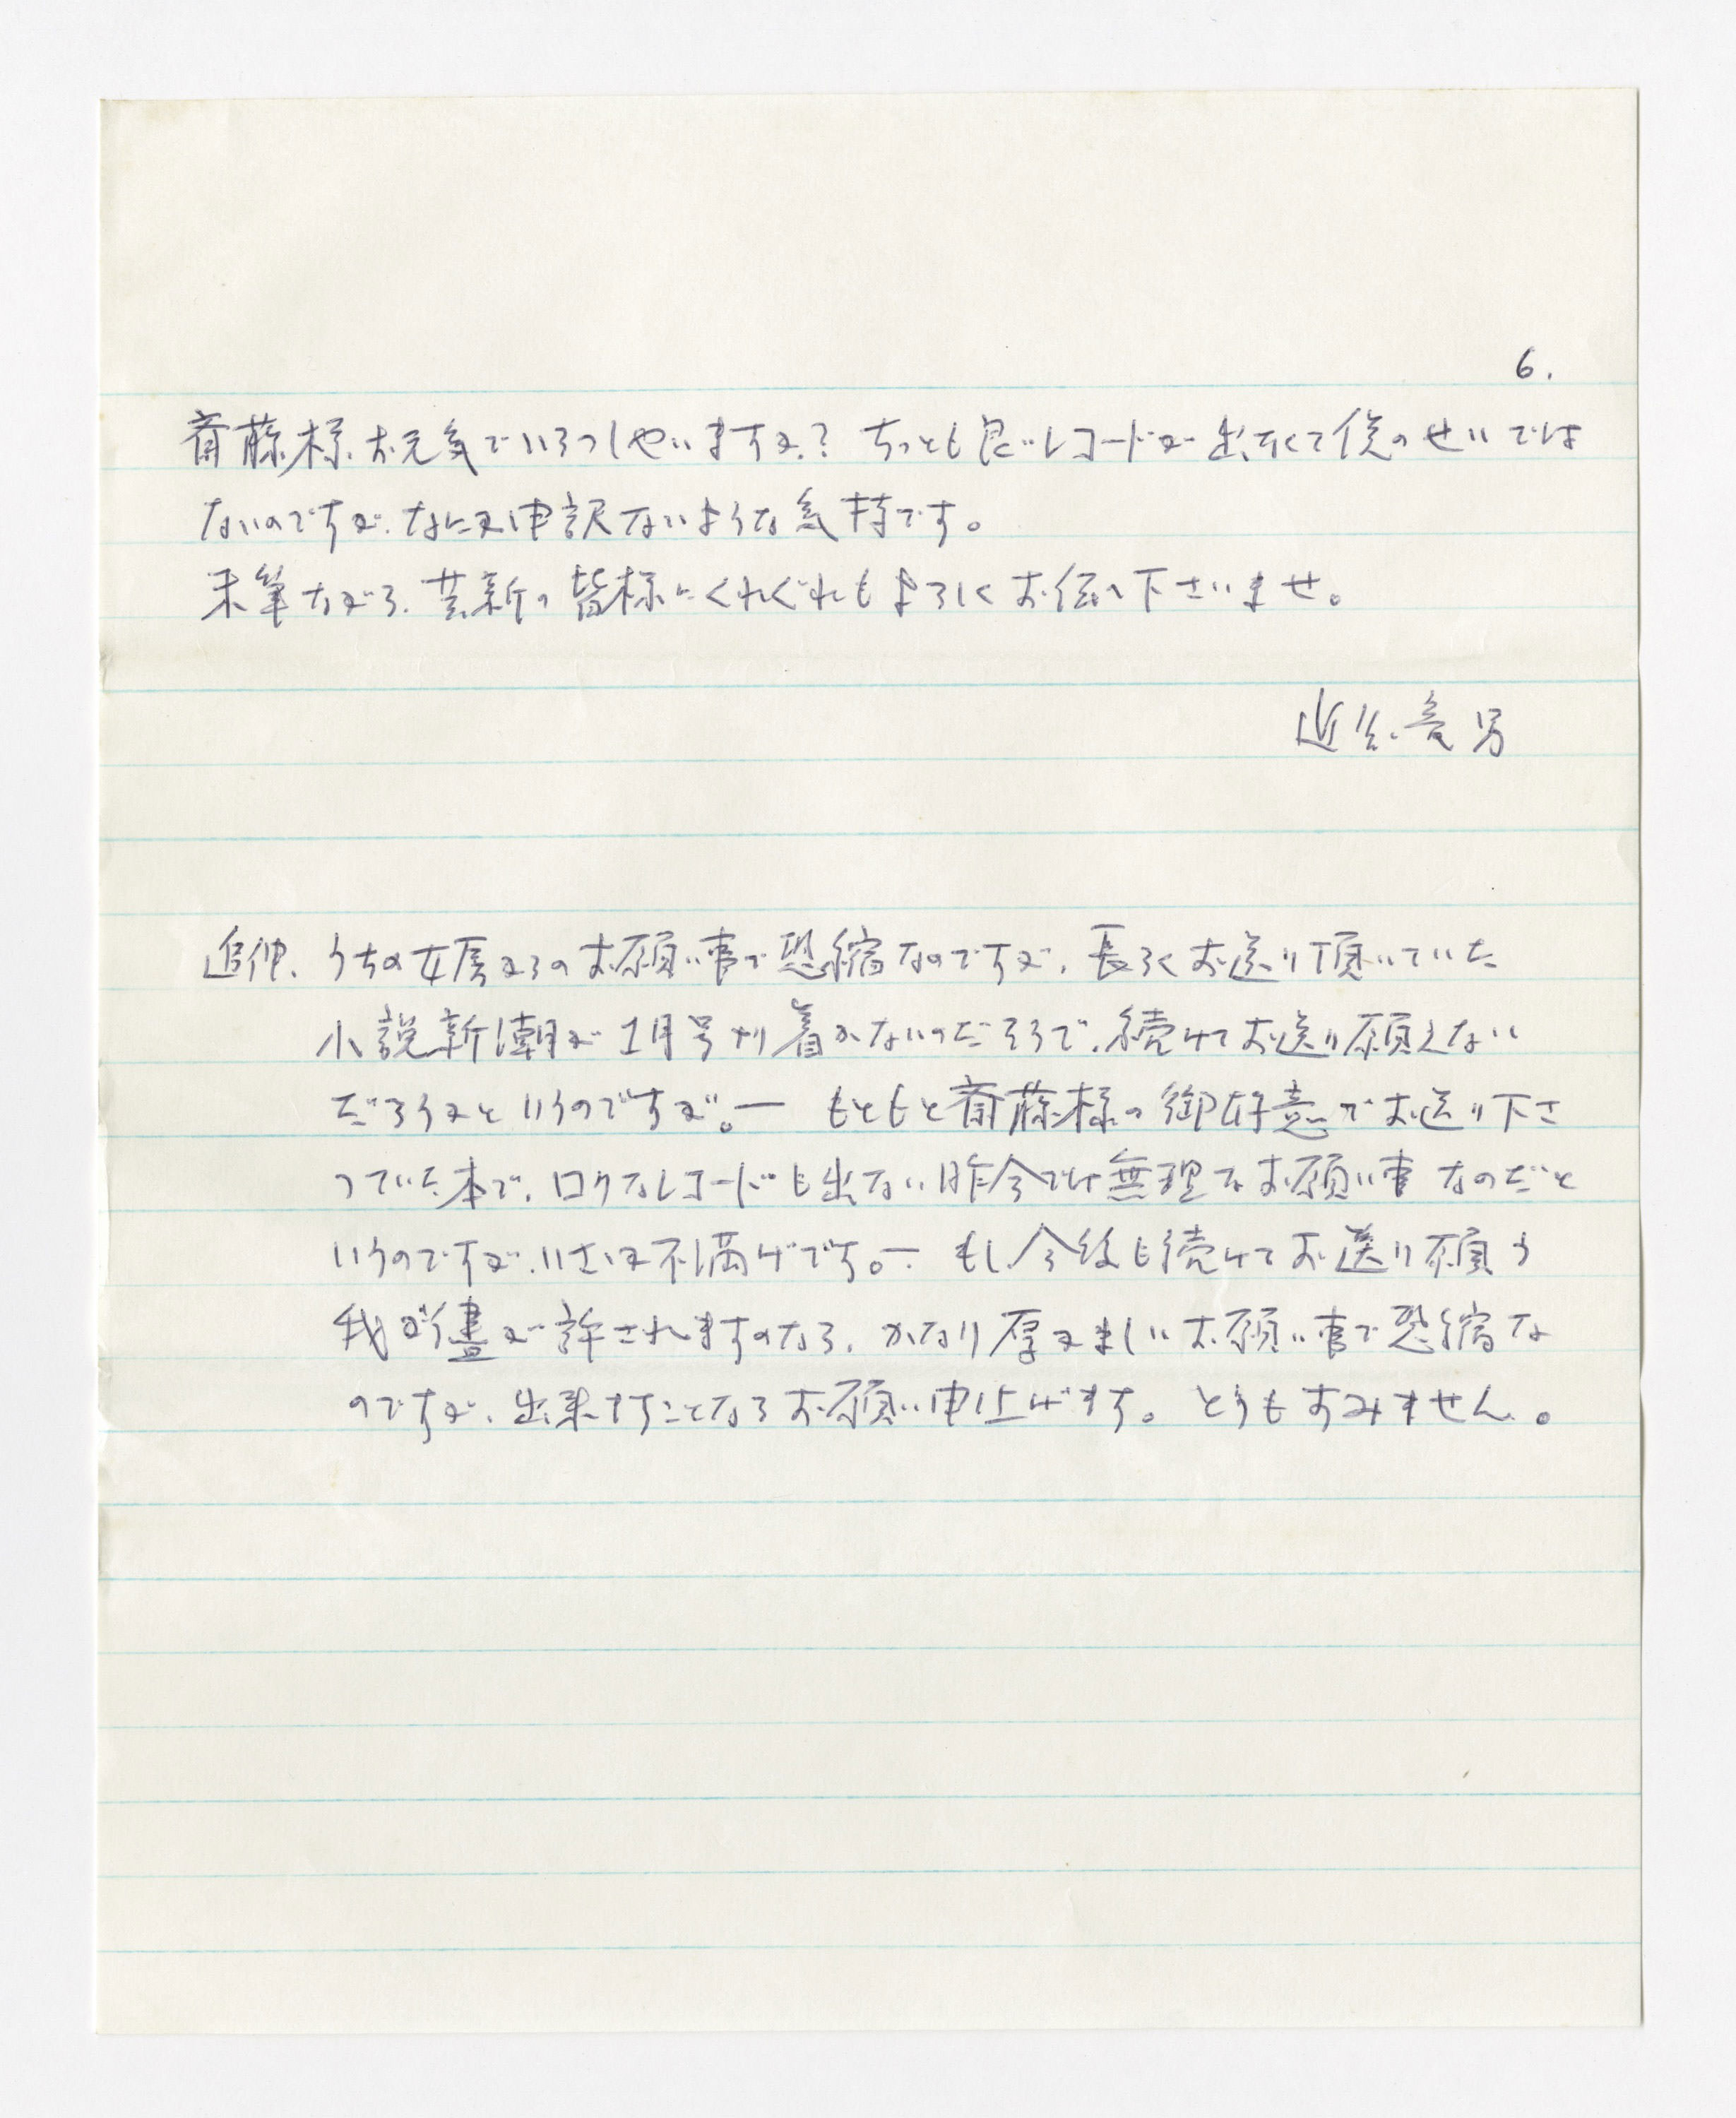 6.
斉藤様、お元気でいらっしやいますか？ ちっとも良いレコードが出なくて僕のせいでは
ないのですが、なにか申訳ないような気持です。
末筆ながら、芸新の皆様にくれぐれもよろしくお伝へ下さいませ。
男
追伸、うちの女房からのお願い事で恐縮なのですが、長らくお送り頂いていた
小説新潮が1月号より着かないのだそうで、続けてお送り願えない
だろうかというのですが。— もともと斉藤様の御好意でお送り下さ
っていた本で、ロクなレコードも出ない昨今では無理なお願い事なのだと
いうのですが、いさゝか不満げです。— もし今後も続けてお送り願う
我が儘が許されますのなら、かなり厚かましいお願い事で恐縮な
のですが、出来ますことならお願い申し上げます。どうもすみません。